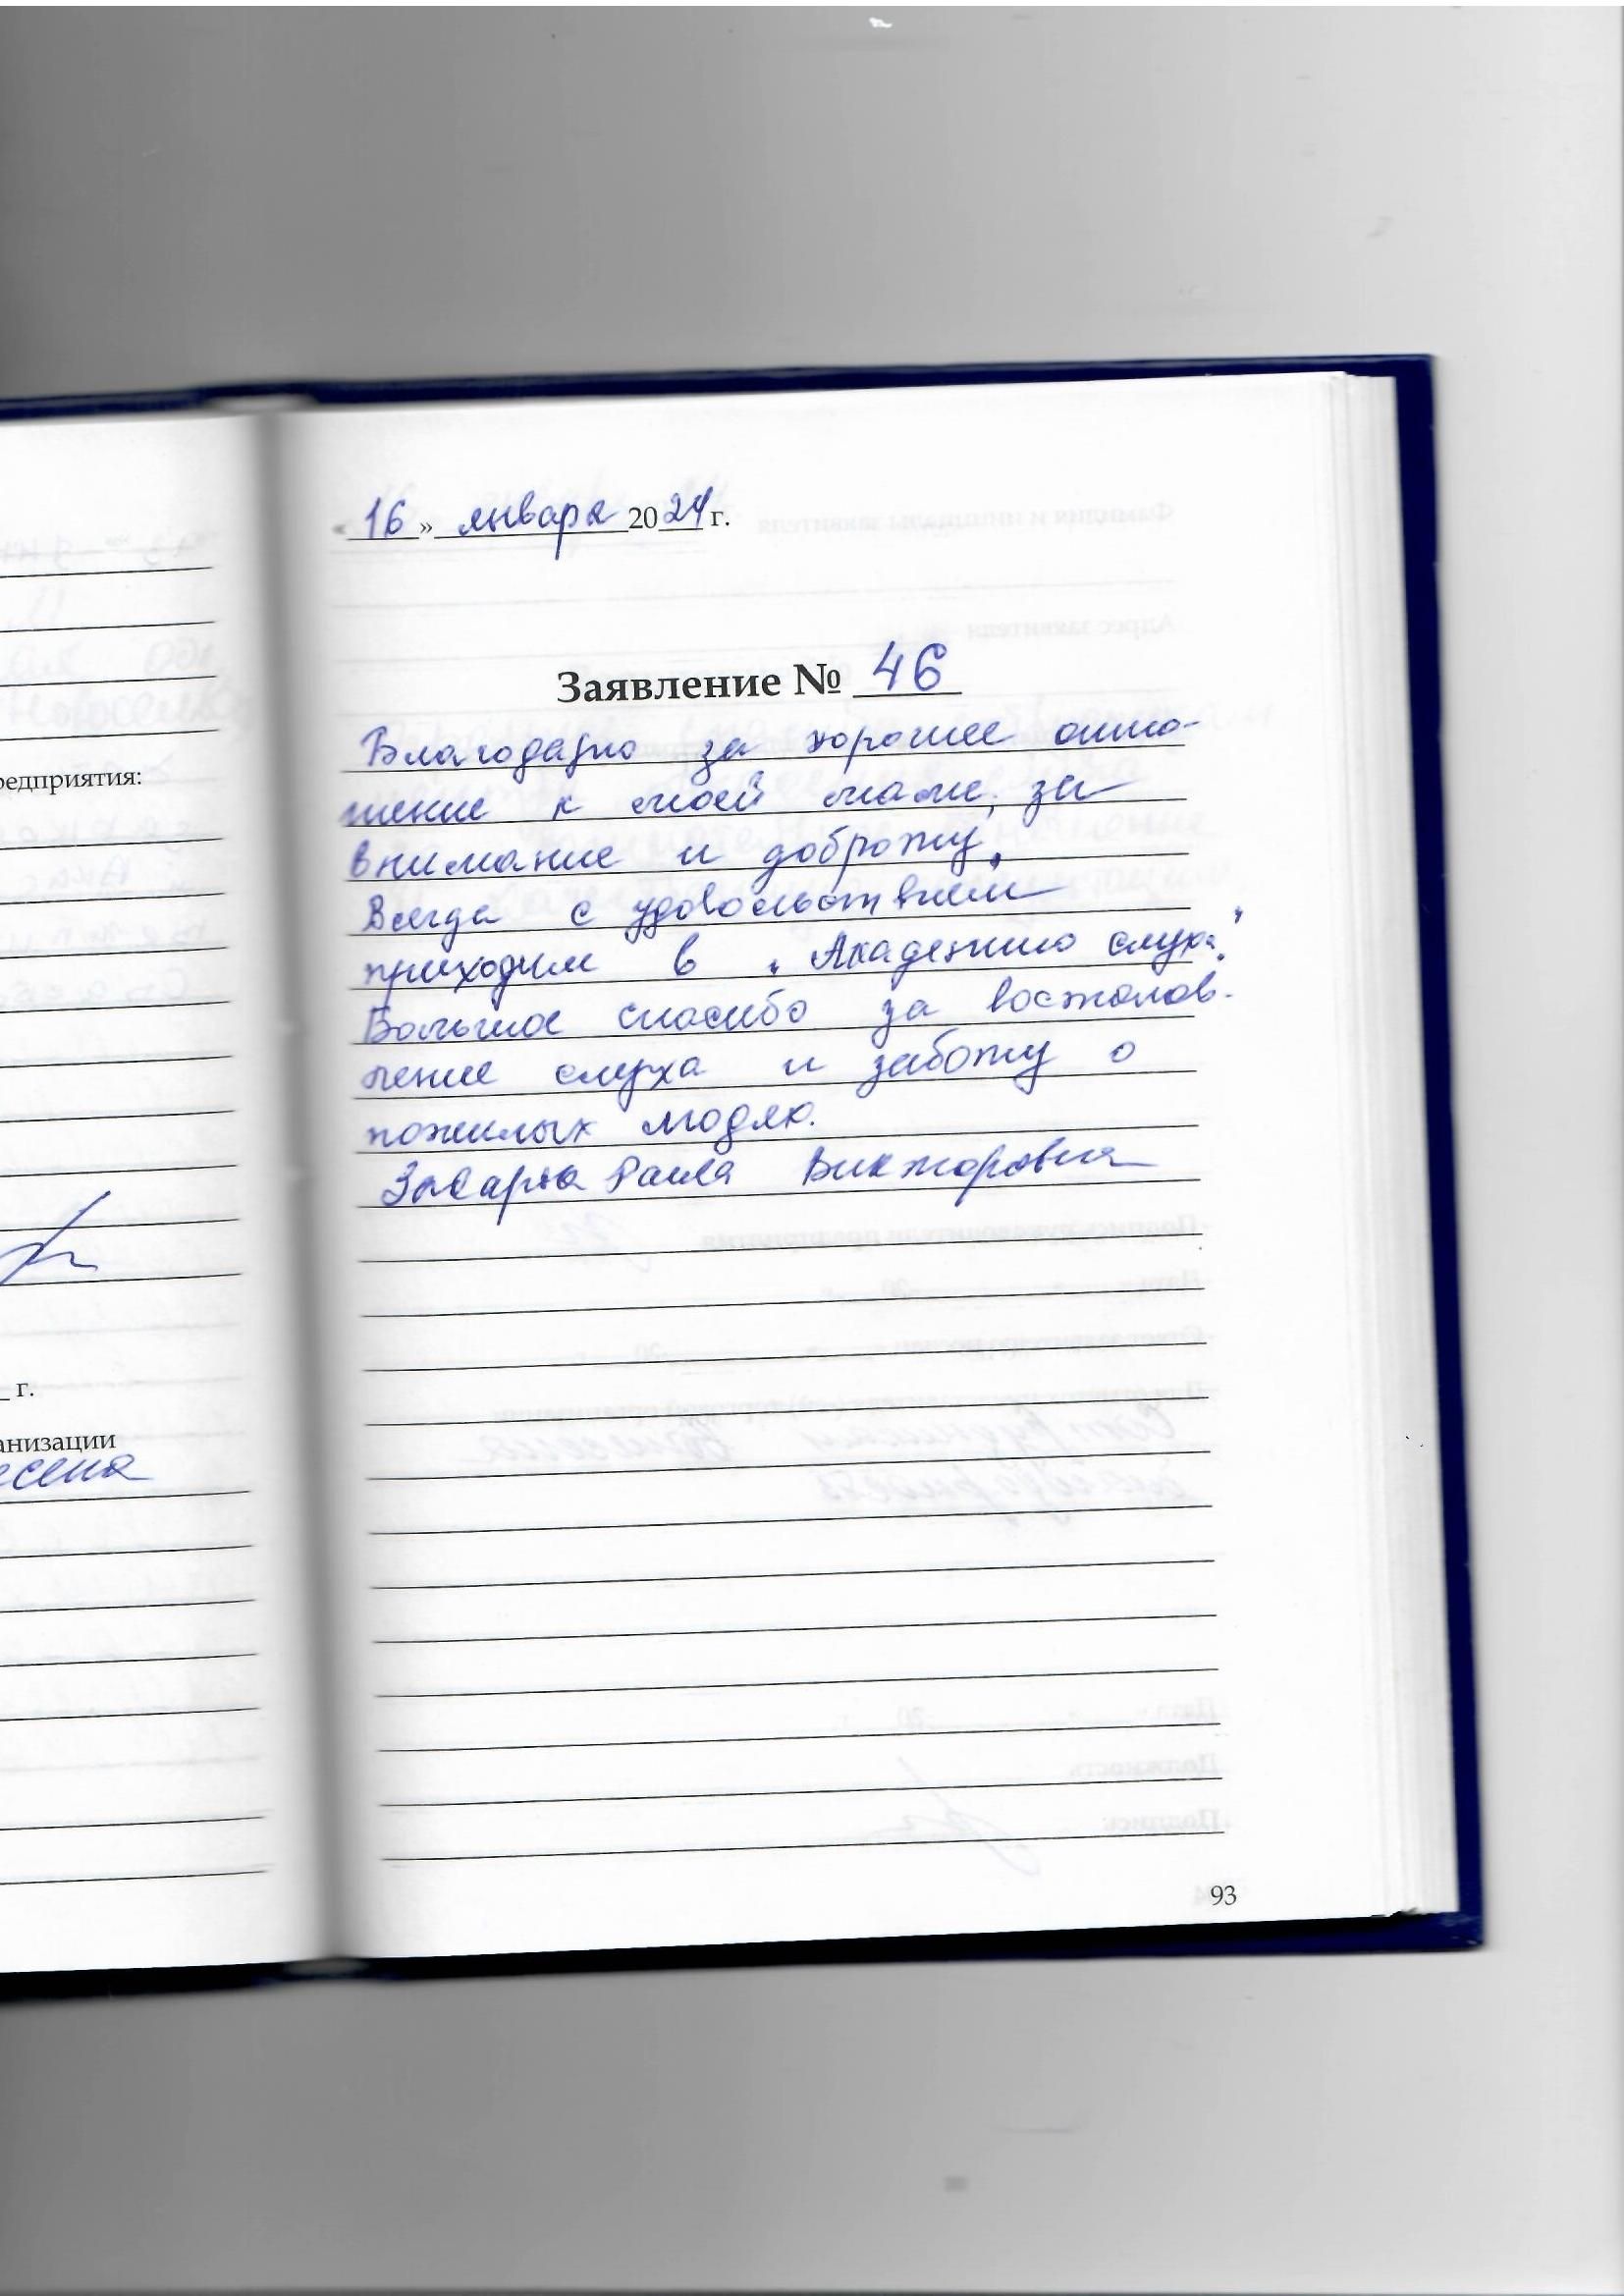 едприятия:
г.
анизации
есена
« 16 » января 2024 г.
Заявление № 46
Благодарю за хорошее отно-
шение к моей маме, за
внимание и доброту.
Всегда с удовольствием
приходим в "Академию слуха".
Большое спасибо за востонов-
ление слуха и заботу о
пожилых людях.
Раиса Викторовна
93